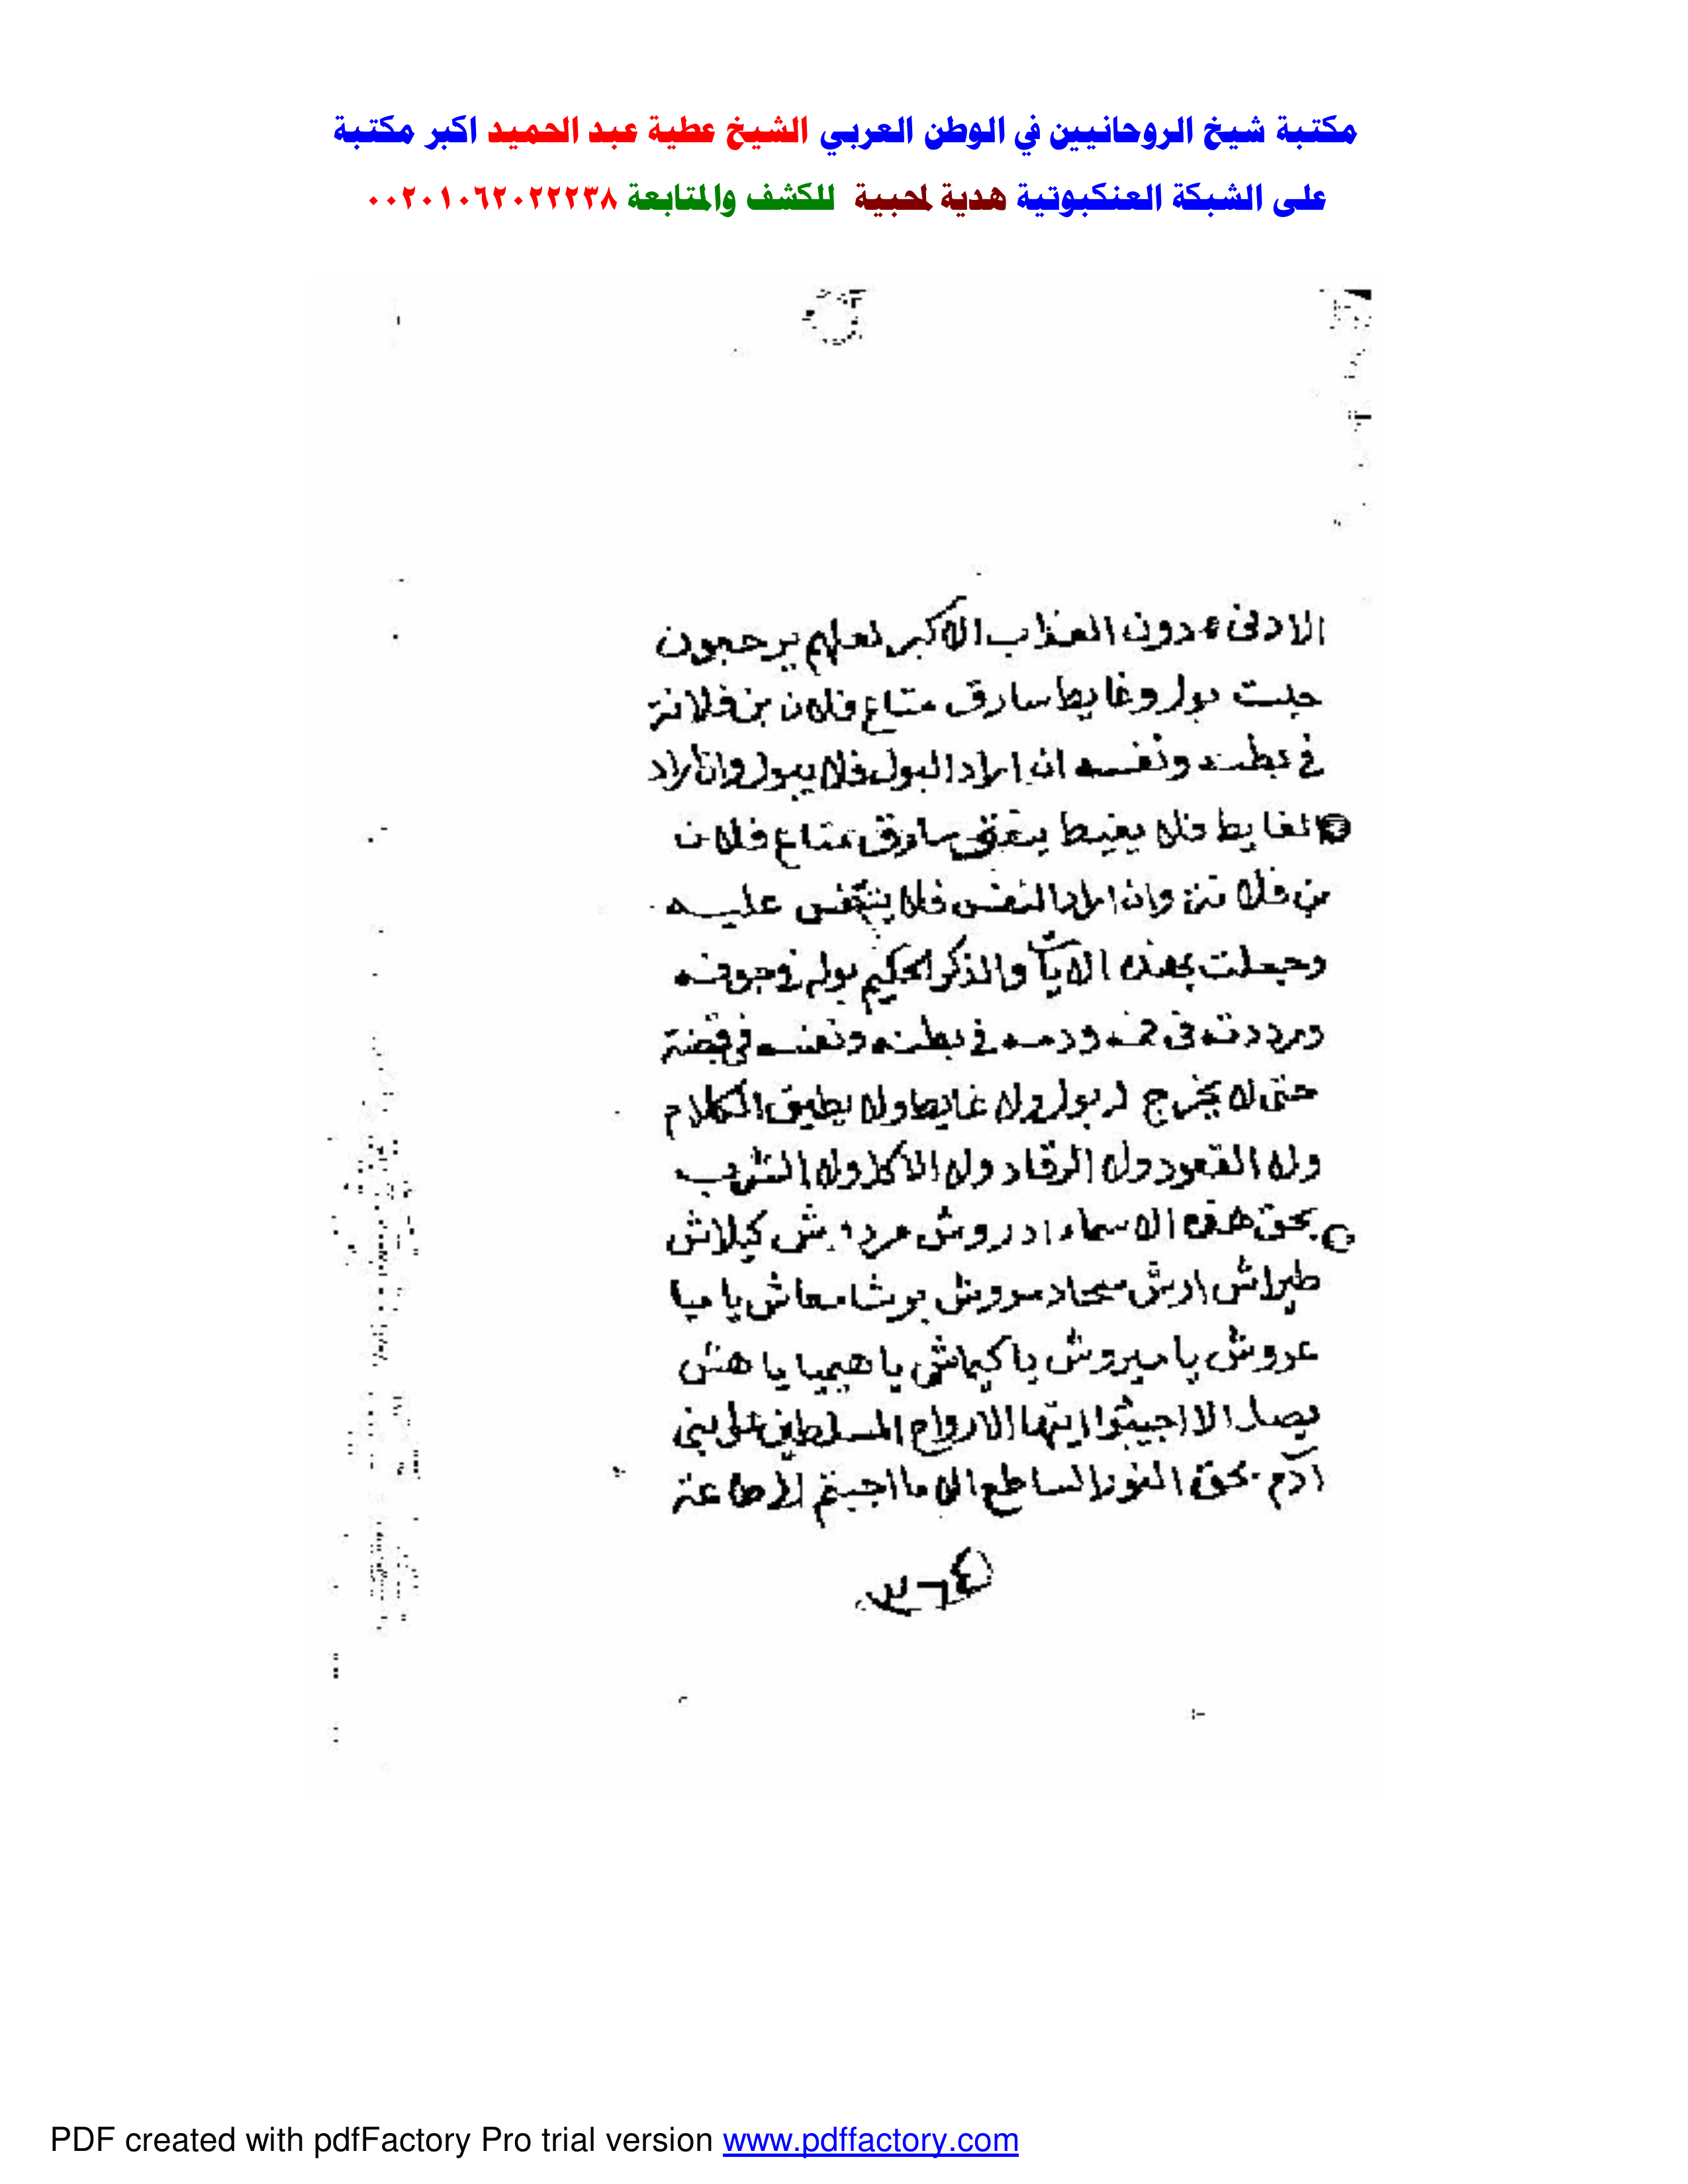 مكتبة شيخ الروحانيين في الوطن العربي الشيخ عطية عبد الحميد اكبر مكتبة
على الشبكة العنكبوتية هدية لمحبية للكشف والمتابعة ٠٠٢٠١٠٦٢٠٢٢٢٣٨
الادنى دون العذاب الاكبر لعلهم يرجعون
بول وغايط سارق متاع فلان بن فلانة
في بطنه ونفسه ان اراد البول فلا يبول وان اراد
الغايط فلا يغيط سارق متاع فلان
بن فلانة وان اراد النفس فلا يتنفس عليه
وجعلت بهذه الايات والذكر الحكيم بوله في جوفه
ورددته في ودمه في بطنه ونفسه في
حتى لا يخرج لا بول ولا غايط ولا يطيق الكلام
ولا القعود ولا الرقاد ولا الاكل ولا الشرب
بحق هذه الاسماء ادروش كيلاش
طيراش ارش
عروش يا ميروش يا كيهاش يا هيميا يا هش
يصل الا اجيبوا ايتها الارواح المسلطين على بني
آدم بحق النور الساطع الا ما اجبتم
PDF created with pdfFactory Pro trial version www.pdffactory.com